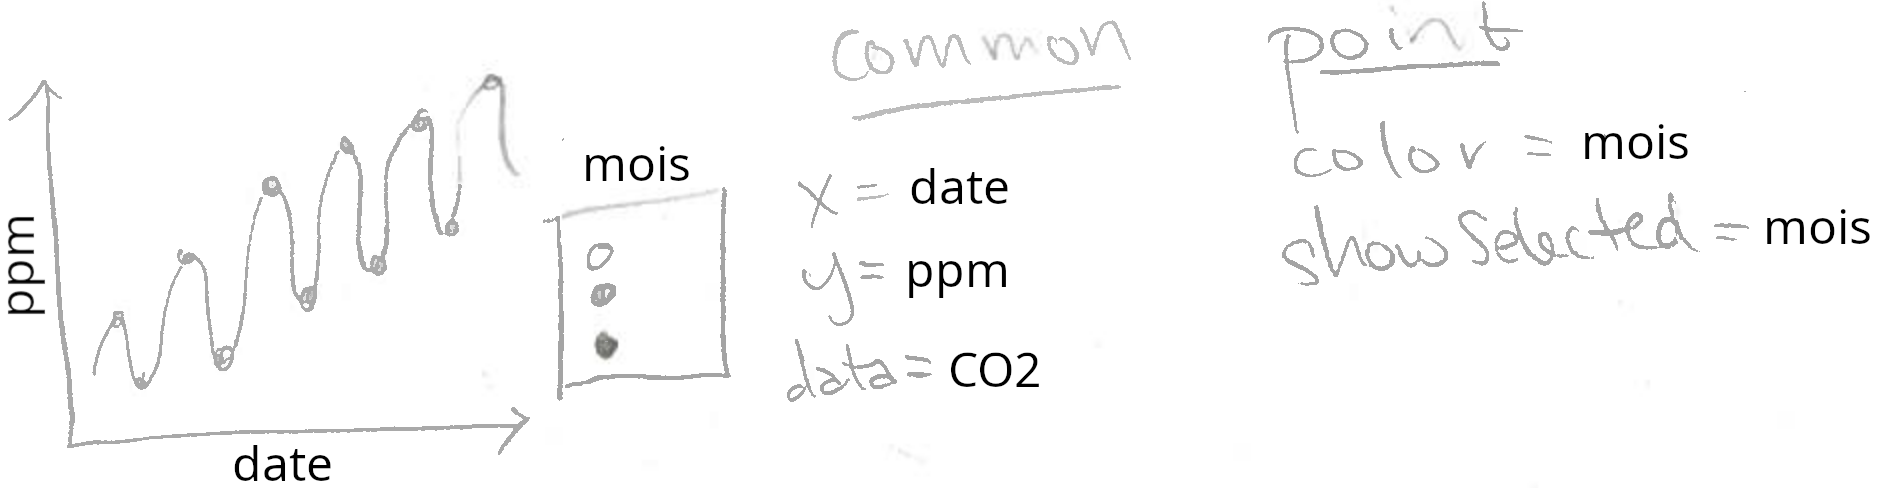 ppm
date
mois
common
x = date
y = ppm
data = CO2
point
color = mois
showSelected = mois